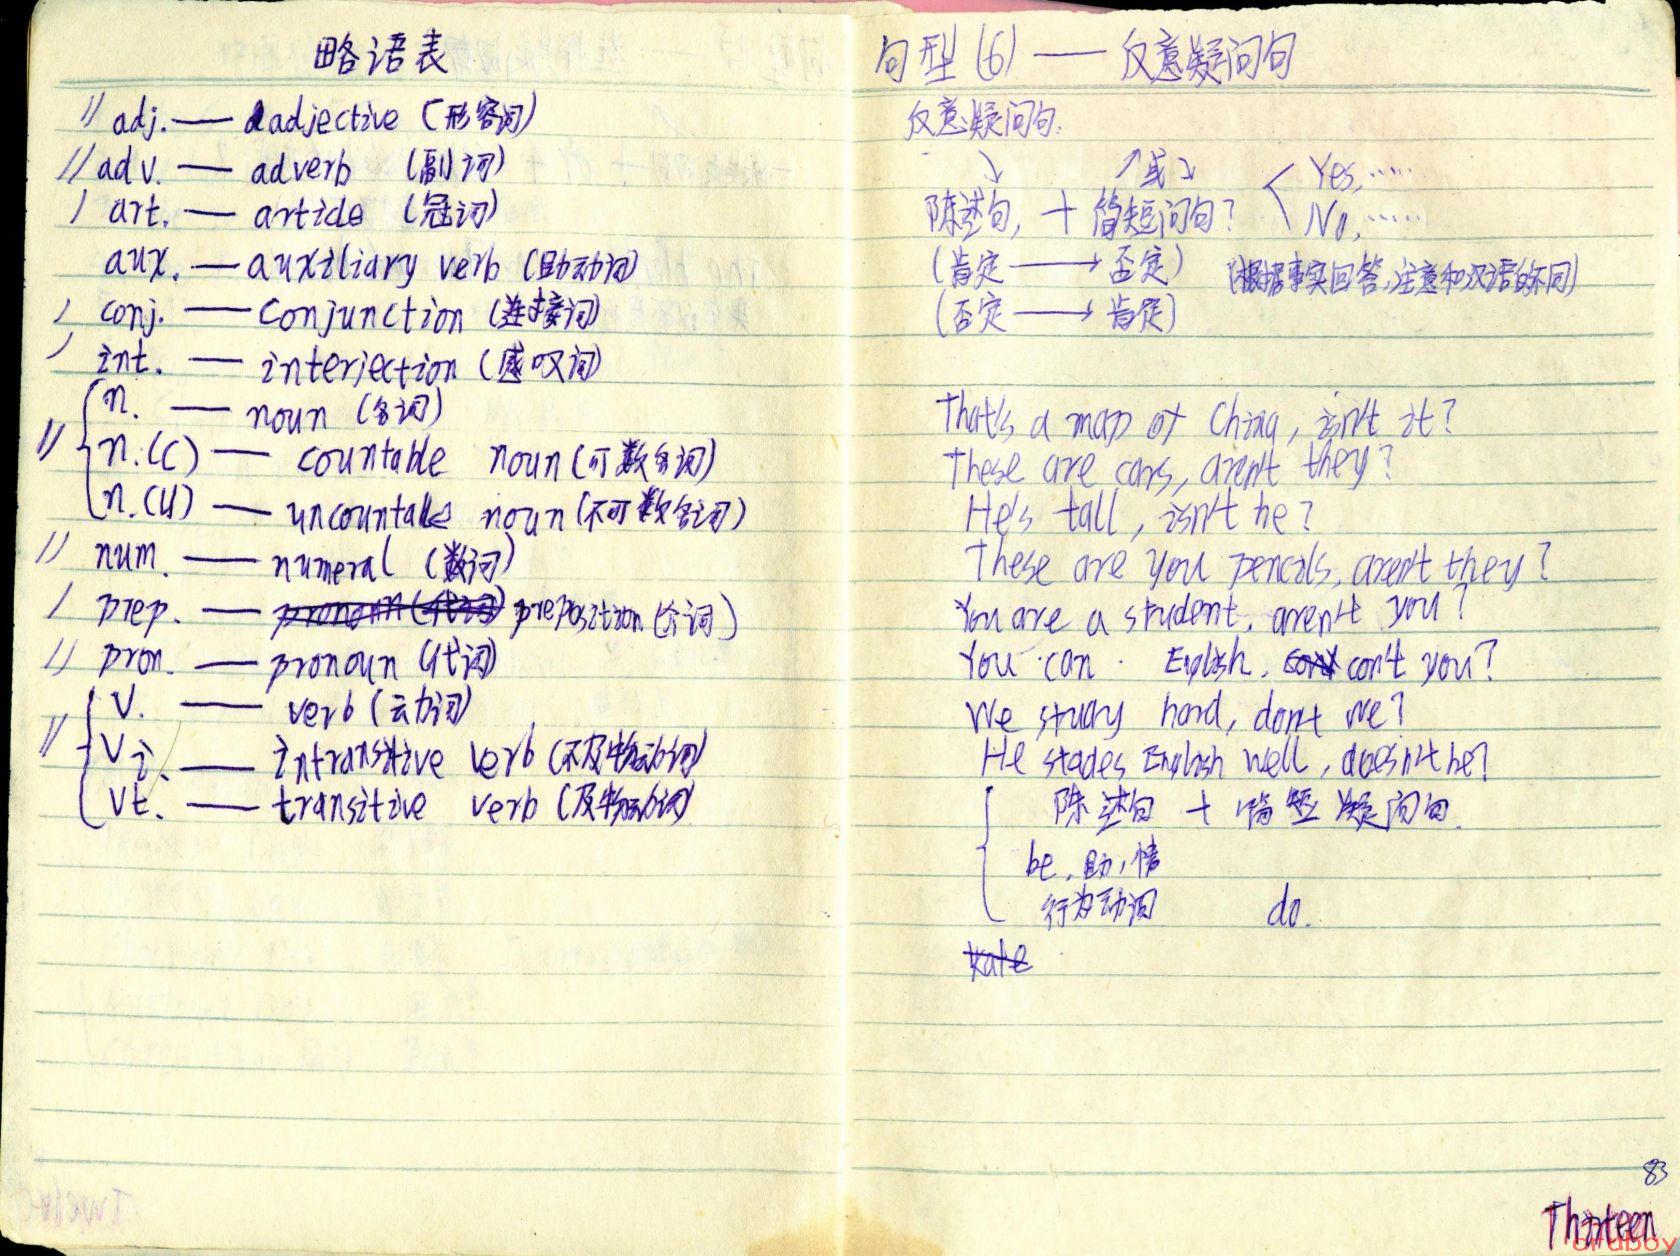 略语表
// adj. — adjective (形容词)
// adv. — adverb (副词)
/ art. — article (冠词)
aux. — auxiliary verb (助动词)
/ conj. — conjunction (连接词)
/ int. — interjection (感叹词)
n. — noun (名词)
// n.(C) — countable noun (可数名词)
n.(U) — uncountable noun (不可数名词)
// num. — numeral (数词)
/ prep. — pronoun (代词) preposition (介词)
// pron. — pronoun (代词)
v. — verb (动词)
// vi. — intransitive verb (不及物动词)
vt. — transitive verb (及物动词)
句型(6) — 反意疑问句
反意疑问句.
↘ ↗或↘ Yes,……
陈述句, + 简短问句? No,……
(肯定 → 否定) (根据事实回答,注意和汉语的不同)
(否定 → 肯定)
That's a map of China, isn't it?
These are cars, aren't they?
He's tall, isn't he?
These are you pencils, aren't they?
You are a student, aren't you?
You can English, con't you?
We study hard, don't we?
He stades English well, doesn't he?
陈述句 + 简短疑问句.
be, 助, 情
行为动词 do.
Kate
83
Thirteen